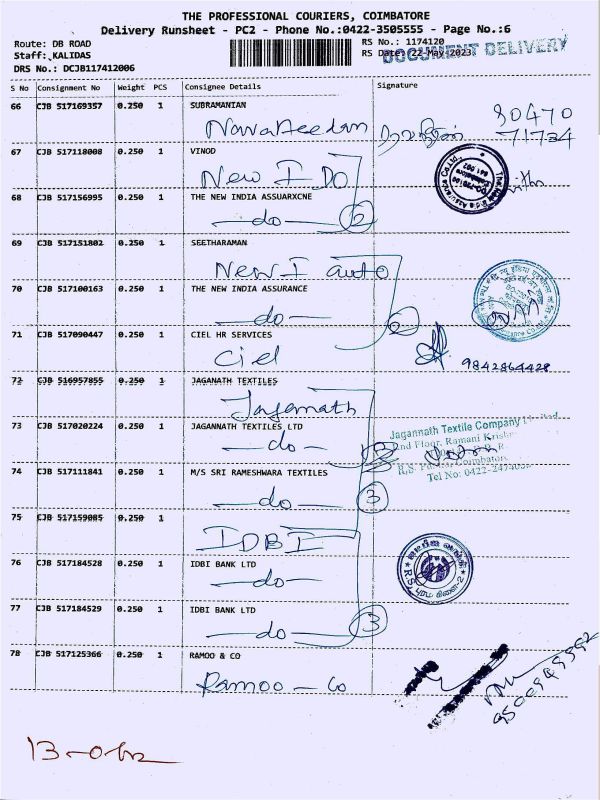 THE PROFESSIONAL COURIERS, COIMBATORE
Delivery Runsheet - PC2 - Phone No.:0422-3505555 - Page No.:6
Route: DB ROAD
RS No.: 1174120
Staff: KALIDAS
RS Date: 22-May-2023
DOCUMENT DELIVERY
DRS No.: DCJB117412006
S No Consignment No Weight PCS Consignee Details Signature
66 CJB 517169357 0.250 1 SUBRAMANIAN
Nawaneedan 80470
71734
67 CJB 517118008 0.250 1 VINOD
New I DO
68 CJB 517156995 0.250 1 THE NEW INDIA ASSUARXCNE
— do — 2
69 CJB 517151802 0.250 1 SEETHARAMAN
New I auto
70 CJB 517100163 0.250 1 THE NEW INDIA ASSURANCE
— do — 2
71 CJB 517090447 0.250 1 CIEL HR SERVICES
Ciel 9842864428
72 CJB 516957855 0.250 1 JAGANATH TEXTILES
Jagannath
73 CJB 517020224 0.250 1 JAGANNATH TEXTILES LTD
— do —
Jagannath Textile Company Limited
2nd Floor, Ramani Krishn
Coimbatore
Tel No: 0422-
74 CJB 517111841 0.250 1 M/S SRI RAMESHWARA TEXTILES
— do — 3
75 CJB 517159085 0.250 1
IDBI
76 CJB 517184528 0.250 1 IDBI BANK LTD
— do —
77 CJB 517184529 0.250 1 IDBI BANK LTD
— do — 3
78 CJB 517125366 0.250 1 RAMOO & CO
Ramoo — Co